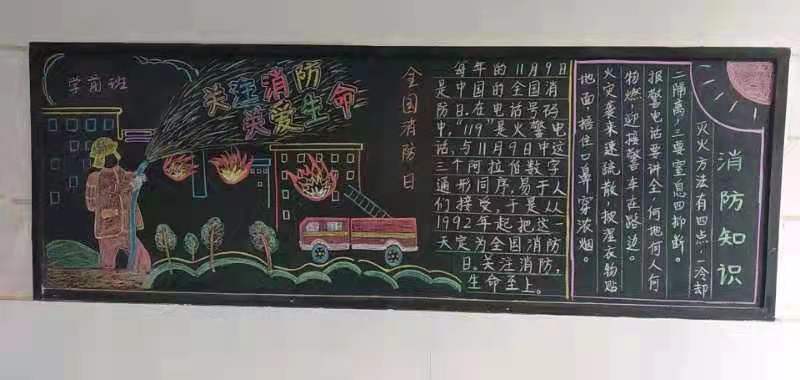 学前班
关注消防
关爱生命
全国消防日
每年的11月9日
是中国的全国消
防日。在电话号码
中，"119"是火警电
话，与11月9日中这
三个阿拉伯数字
遍形同序，易于人
们接受，于是从
1992年起把这一
天定为全国消防
日。关注消防，
生命至上。
消防知识
灭火方法有四点，一冷却
二隔离，三窒息四抑断。
报警电话要讲全，何地何人何
物燃，迎接警车在路边。
火灾袭来速疏散，披湿衣物贴
地面捂住口鼻穿浓烟。